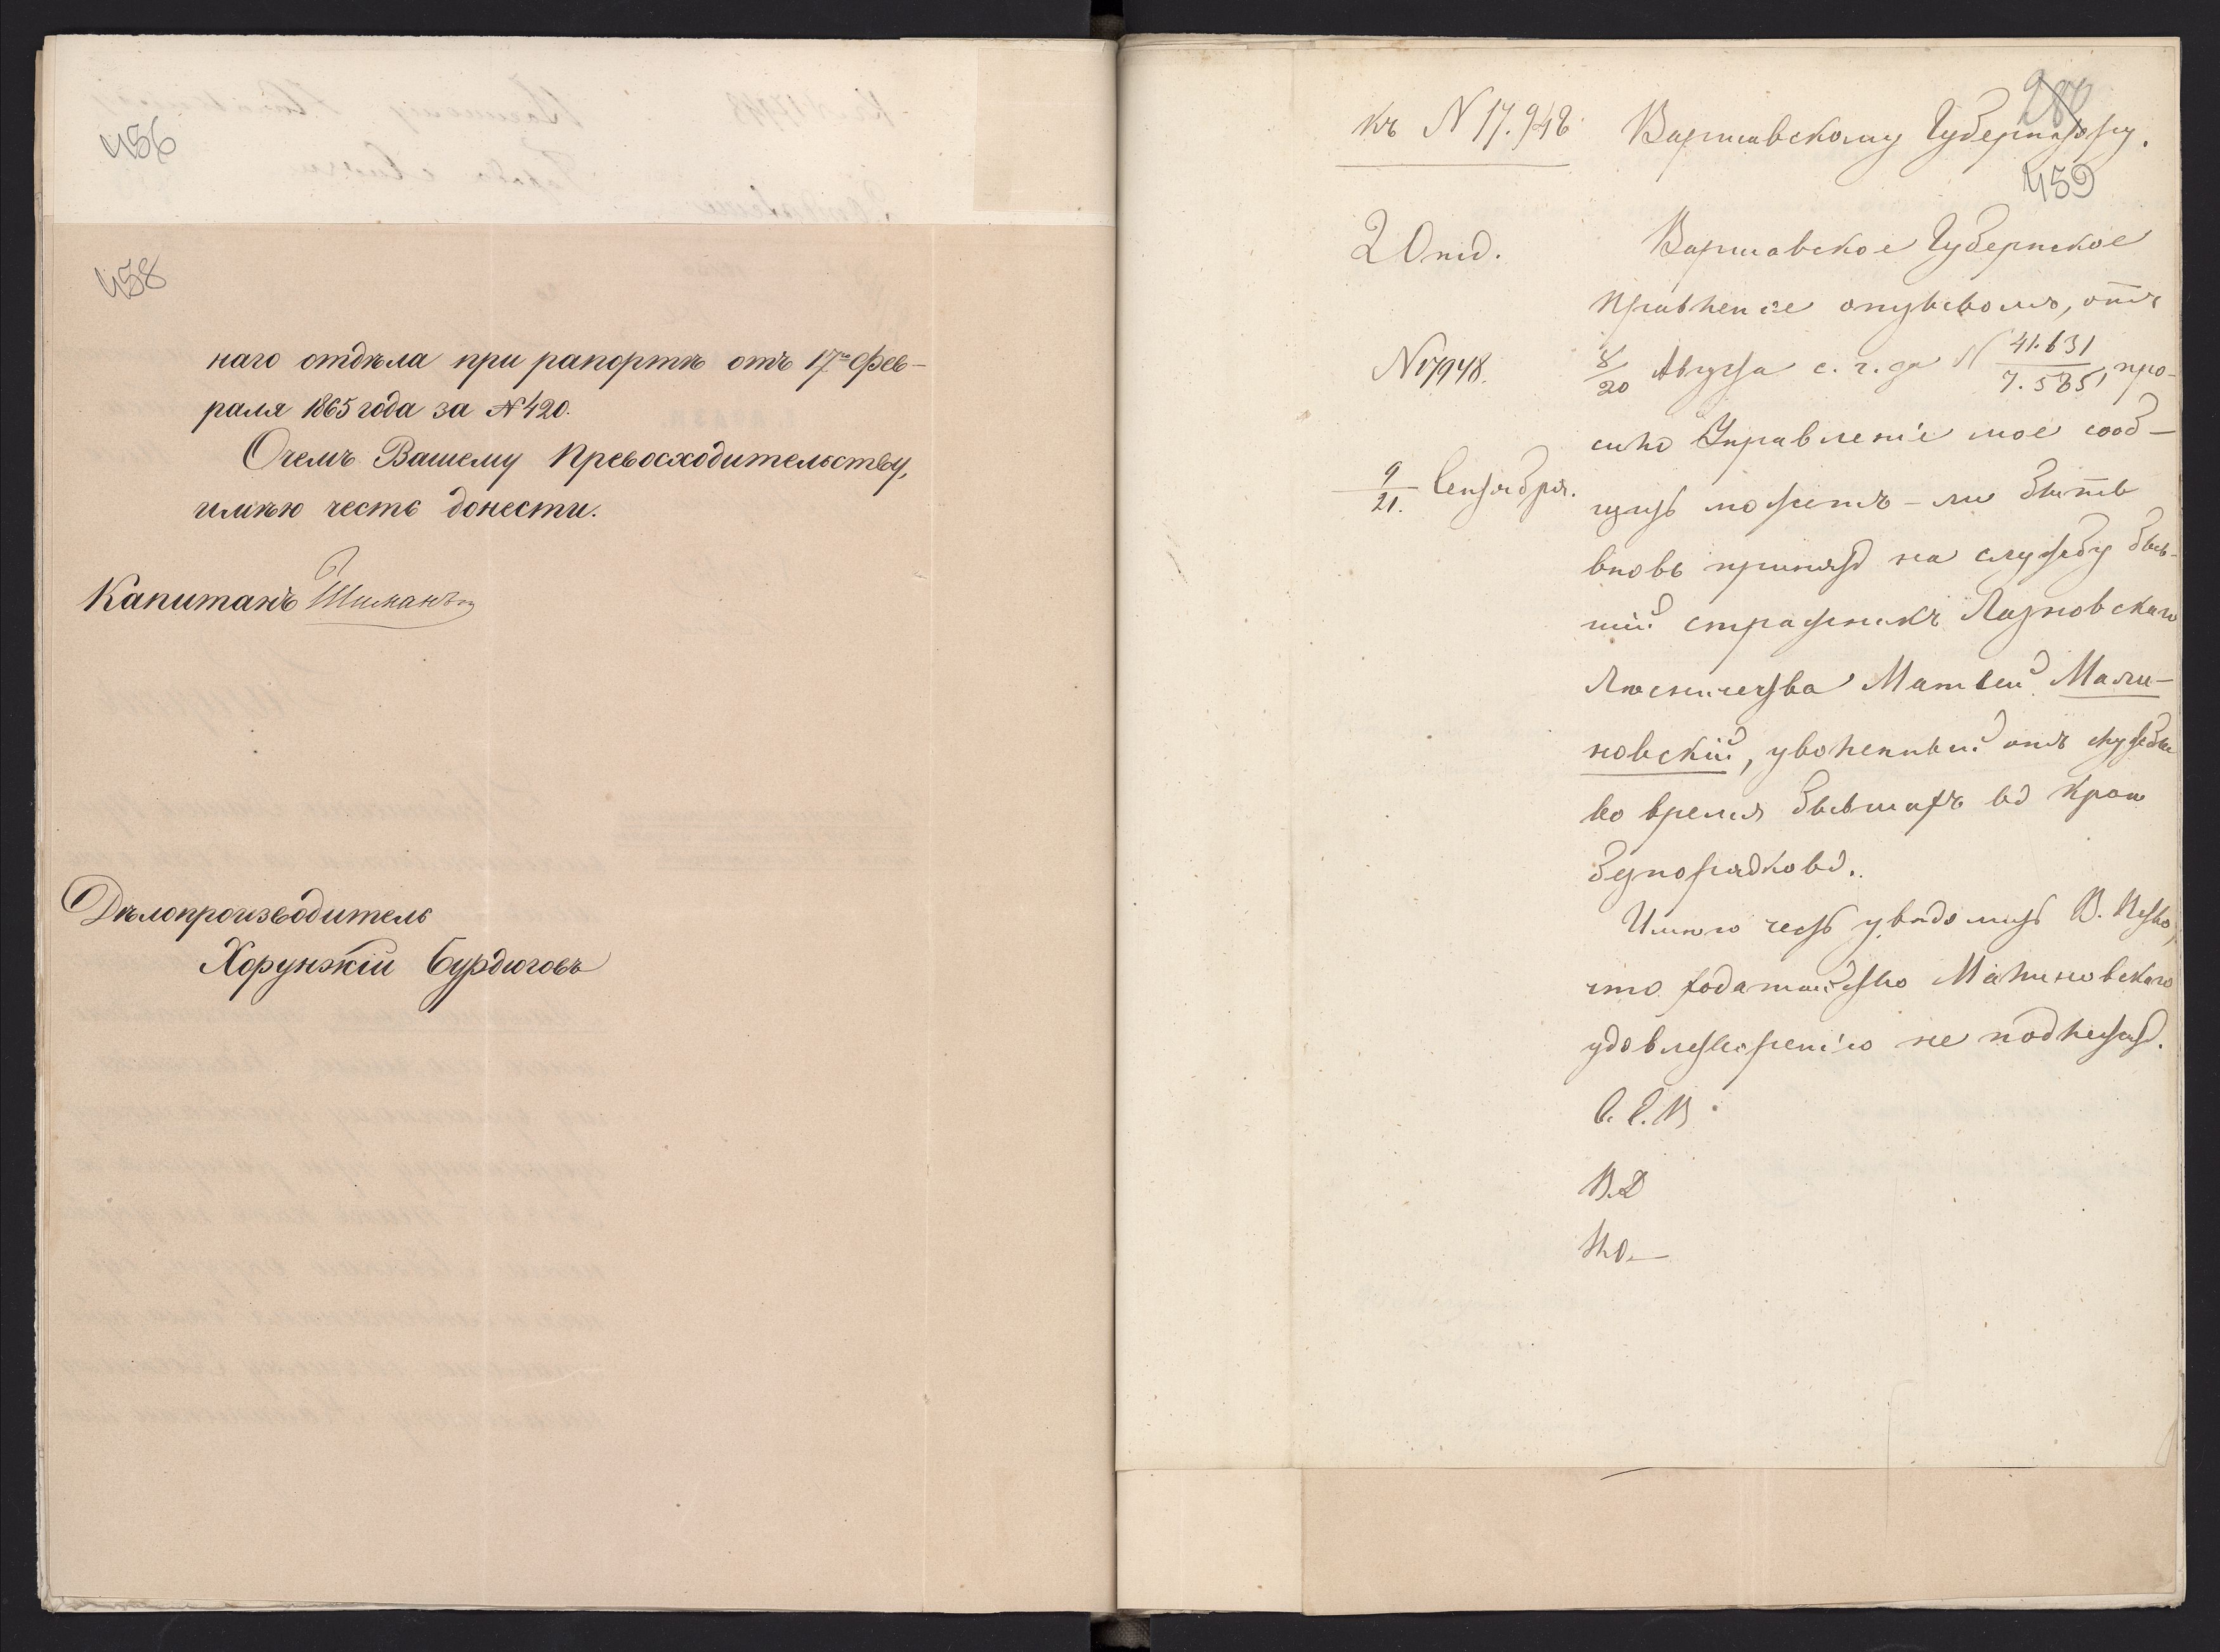 456
458
наго отдѣла при рапортѣ отъ 17го Фев-
раля 1865 года за № 420.
О чемъ Вашему Превосходительству,
имѣю честь донести.
Капитанъ
Дѣлопроизводитель
Хорунжій Бурдюговъ
459
Къ N 17.948
Варшавскому Губернатору.
2 Отд.
Варшавское Губернское
Правленіе отзывомъ, отъ
N 17948.
8/20 Августа с. г. за N 41.631/7.585, про-
сило Управленіе мое сооб-
9/21. Сентября.
щить можетъ-ли быть
вновь принятъ на службу быв-
шій стражникъ Лазновскаго
Лѣсничества Матвей Мали-
новскій, уволенный отъ службы
во время бывшихъ въ Краѣ
безпорядковъ.
Имѣю честь увѣдомить В. Пр-во,
что ходатайство Малиновскаго
удовлетворенію не подлежитъ.
В.Д